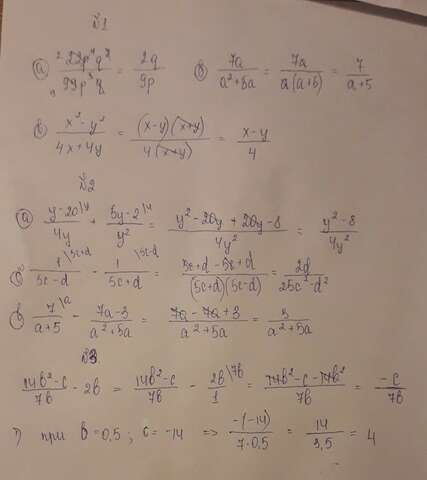 №1
а) 22p⁴q² / 99p⁵q = 2q / 9p   б) 7a / a²+5a = 7a / a(a+5) = 7 / a+5
в) x²-y² / 4x+4y = (x-y)(x+y) / 4(x+y) = x-y / 4
№2
а) y-20 \y / 4y + 5y-2 \4 / y² = y²-20y+20y-8 / 4y² = y²-8 / 4y²
б) 1 \5c+d / 5c-d - 1 \5c-d / 5c+d = 5c+d-5c+d / (5c+d)(5c-d) = 2d / 25c²-d²
в) 7 \a / a+5 - 7a-3 / a²+5a = 7a-7a+3 / a²+5a = 3 / a²+5a
№3
14b²-c / 7b - 2b = 14b²-c / 7b - 2b \7b / 1 = 14b²-c-14b² / 7b = -c / 7b
1) при b=0,5; c=-14 => -(-14) / 7·0,5 = 14 / 3,5 = 4